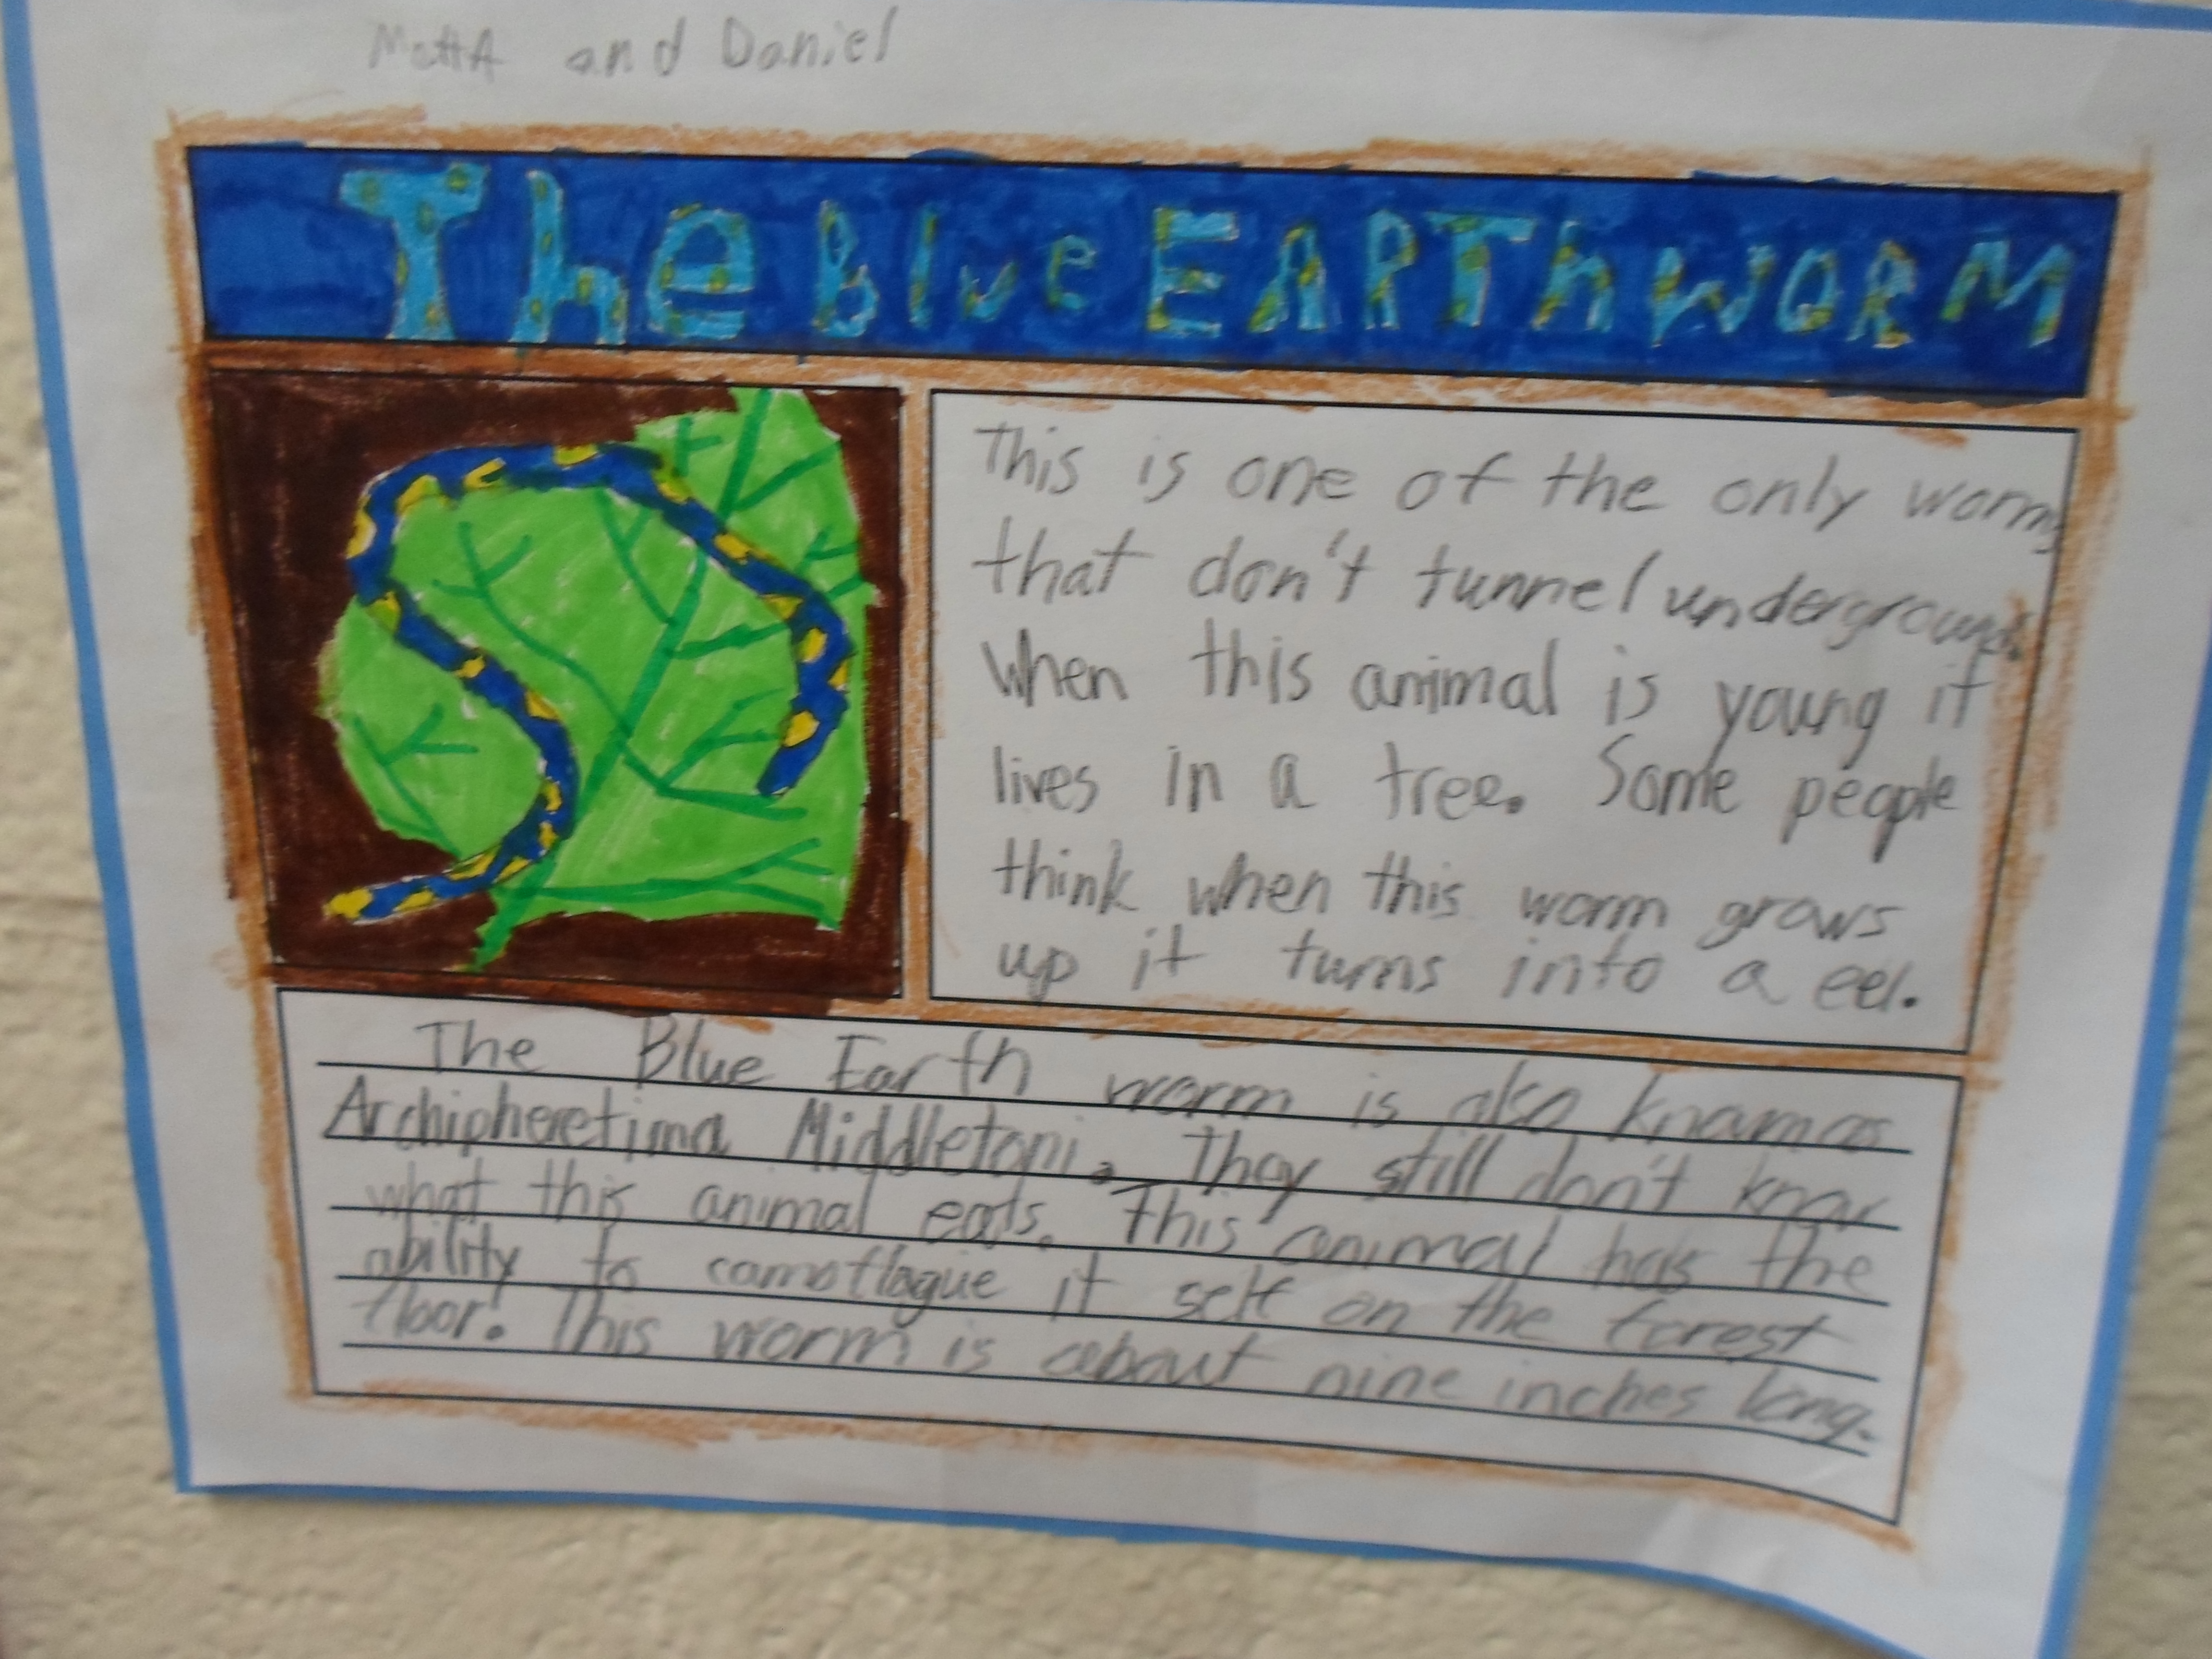 MattA and Daniel
The Blue EARThwoRM
This is one of the only worms
that don't tunnel underground.
When this animal is young it
lives in a tree. Some people
think when this worm grows
up it turns into a eel.
The Blue Earth worm is also known as
Archipheretima Middletoni. They still don't know
what this animal eats. This animal has the
ability to camoflague it self on the forest
floor. This worm is about nine inches long.